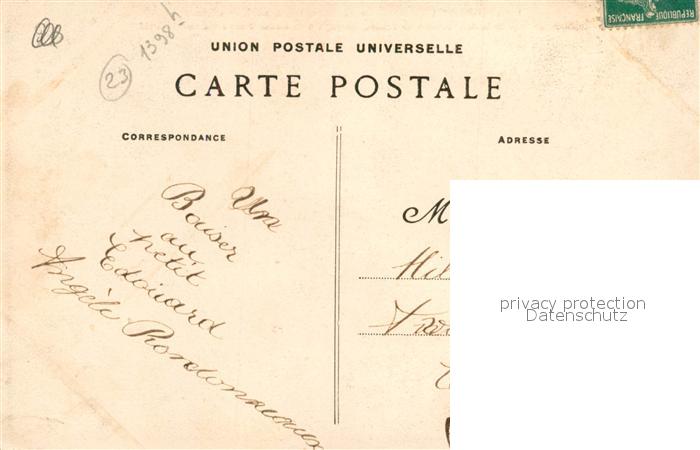 REPUBLIQUE FRANÇAISE
23
1398
UNION POSTALE UNIVERSELLE
CARTE POSTALE
CORRESPONDANCE
ADRESSE
Un
Baiser
au
petit
Edouard
Angèle
M
privacy protection
Datenschutz